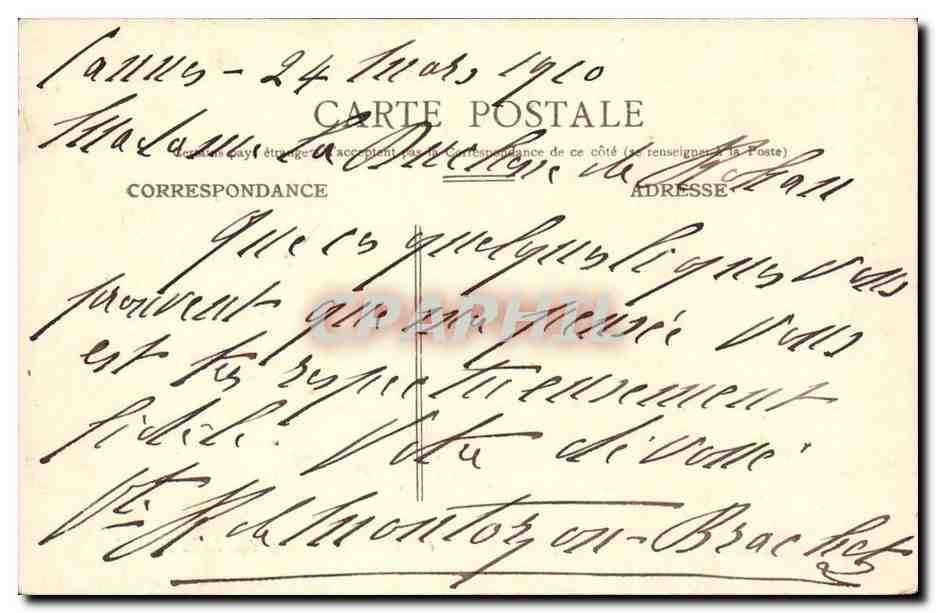 Cannes – 24 Mars 1910
CARTE POSTALE
Madame la Duchesse de Rohan
Certains pays étrangers n'acceptent pas la Correspondance de ce côté (se renseigner à la Poste)
CORRESPONDANCE
ADRESSE
Que ces quelques lignes vous
prouvent que ma pensée vous
CPAPHIL
est très respectueusement
fidèle. Votre dévoué
Vte H. de Montozon-Brachet